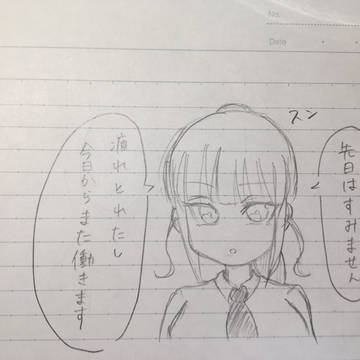 No.
Date
スン
先日はすみません
疲れとれたし
今日からまた働きます